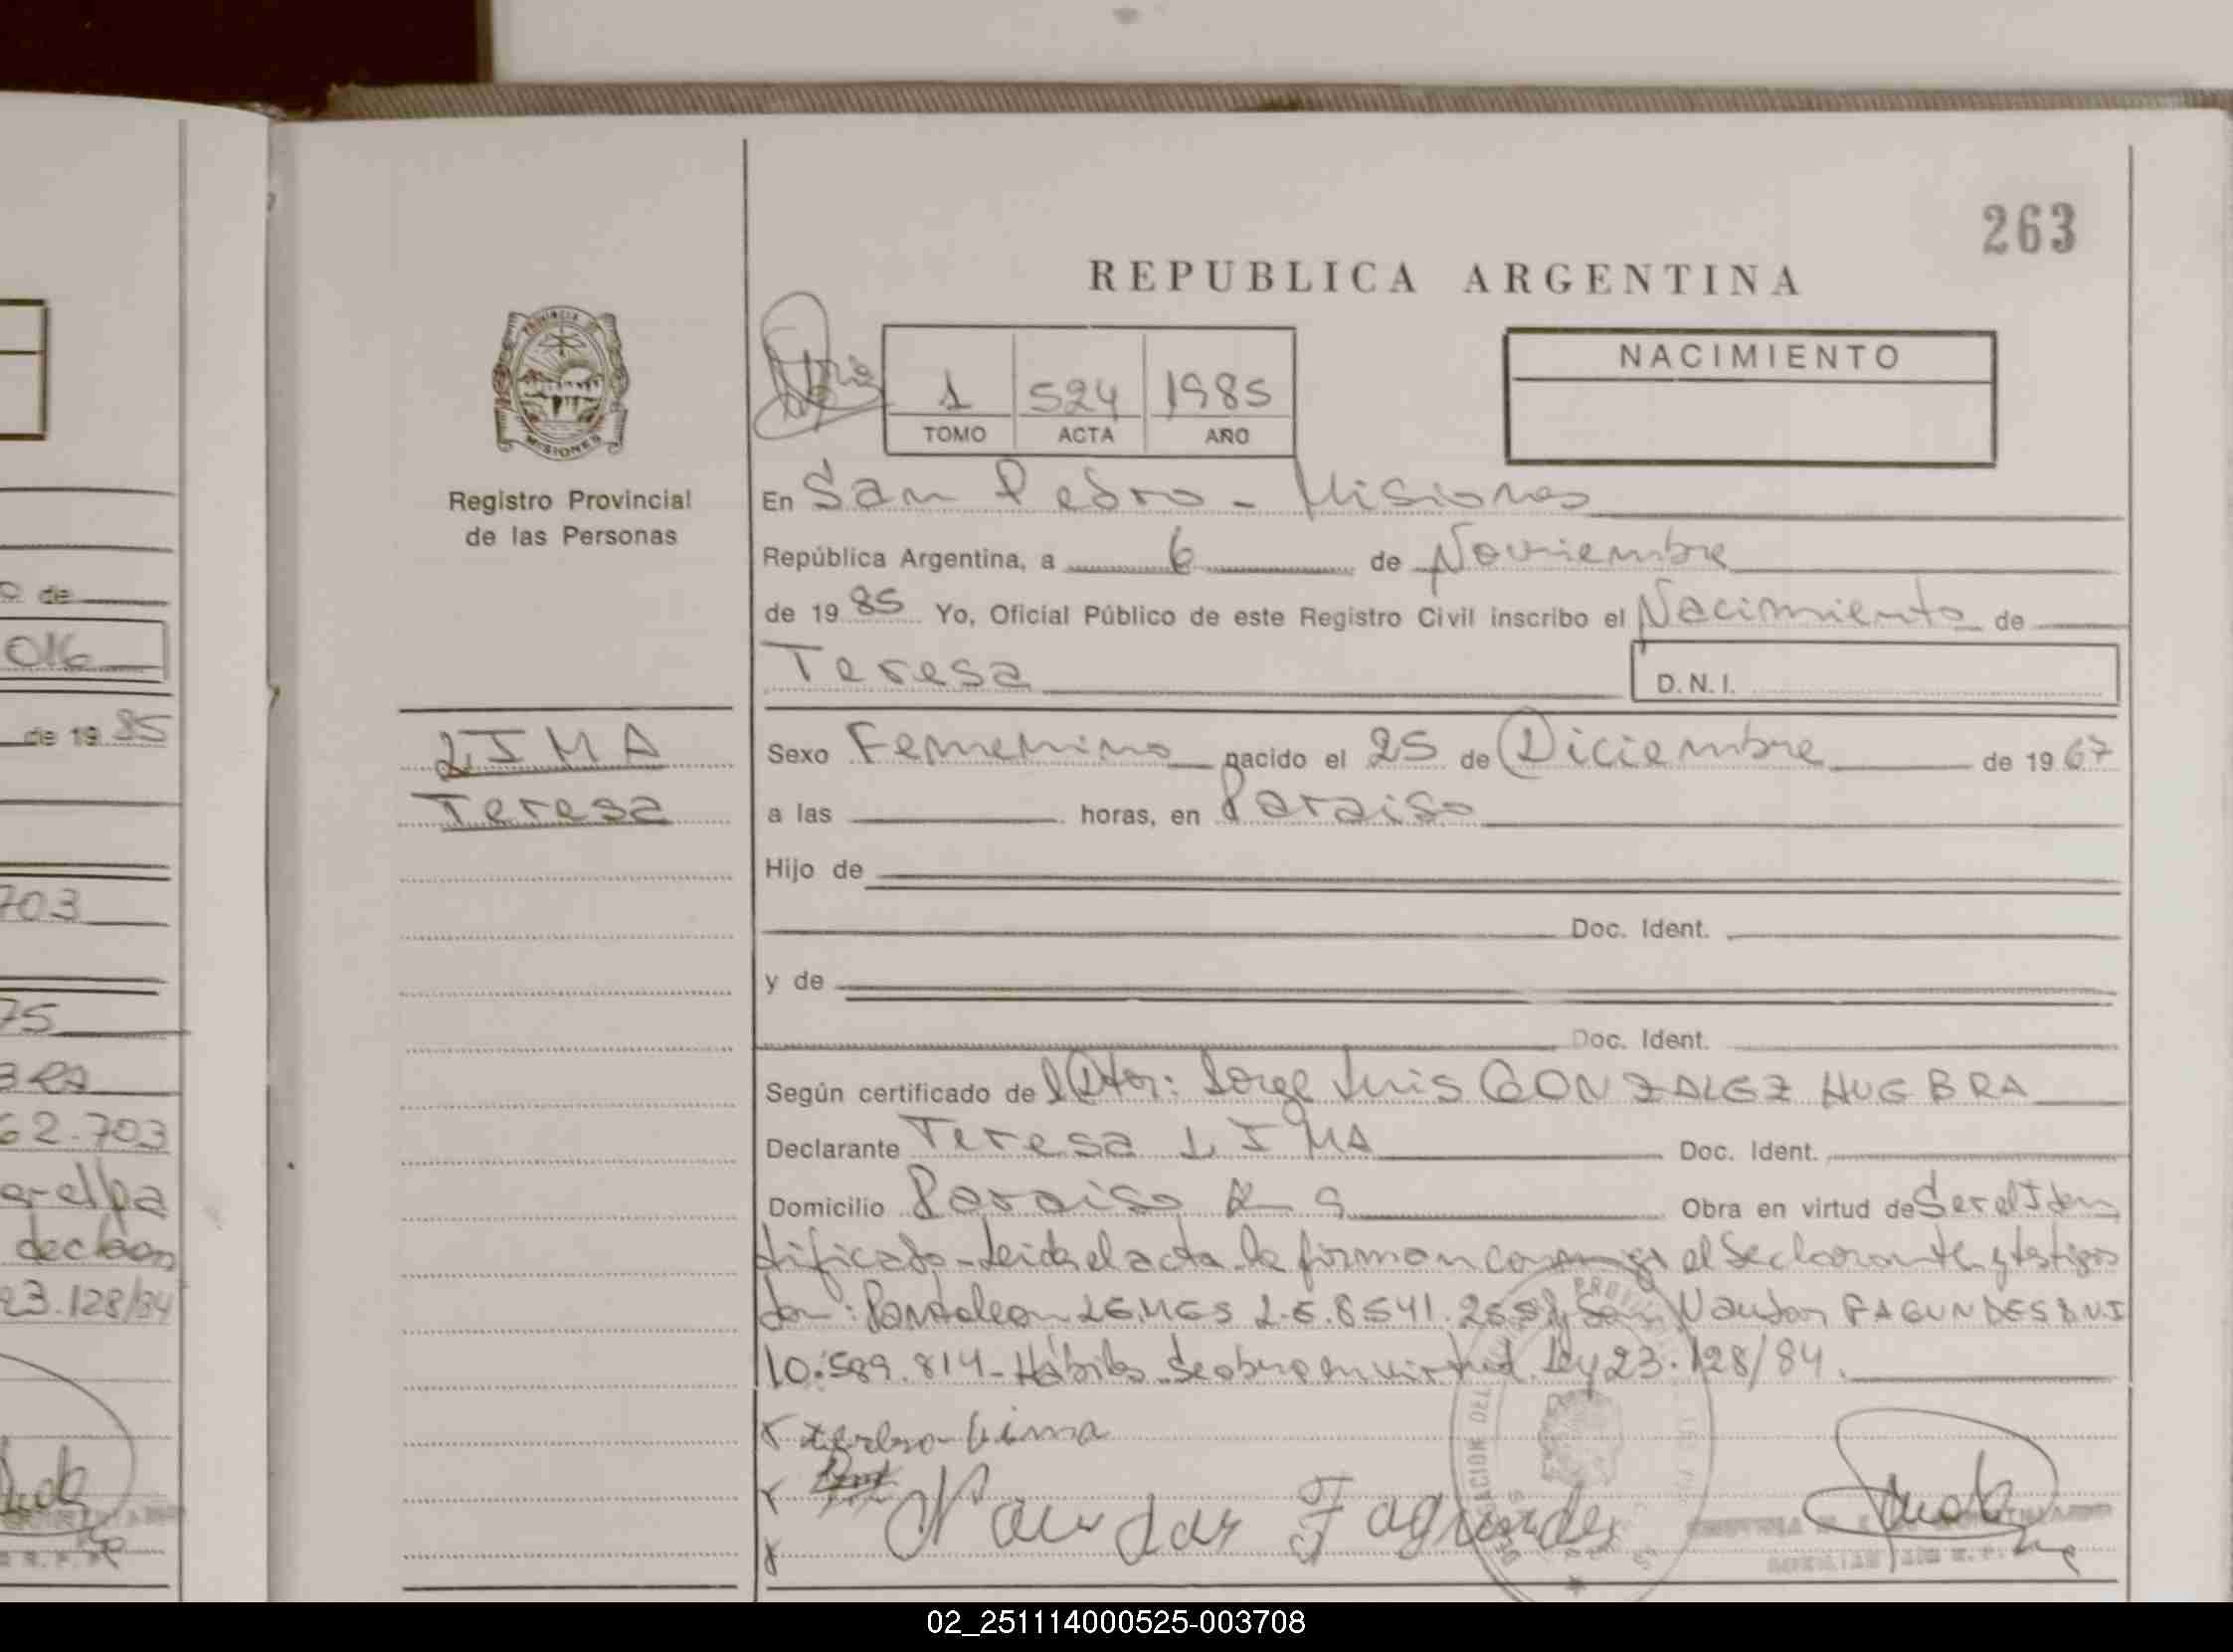 263
REPUBLICA ARGENTINA
PROVINCIA DE
MISIONES
Registro Provincial
de las Personas
1 524 1985
TOMO ACTA AÑO
NACIMIENTO
En San Pedro - Misiones
República Argentina, a 6 de Noviembre
de 1985 Yo, Oficial Público de este Registro Civil inscribo el Nacimiento de
Teresa
D.N.I.
LIMA
Teresa
Sexo Femenino nacido el 25 de Diciembre de 1967
a las horas, en Paraiso
Hijo de
Doc. Ident.
y de
Doc. Ident.
Según certificado de l Dtor: Jorge Luis GONZALEZ HUGBRA
Declarante Teresa LIMA Doc. Ident.
Domicilio Paraiso Obra en virtud de Ser el Iden
tificado - Leida el acta la firman conmigo el declarante y testigos
don: Pantaleon LEMES L.E. 8.541. don Naudar FAGUNDES DNI
10.589.814 - Hábiles - Se obra en virtud Ley 23.128/84.
Lima
Naudar Fagundes
o de
016
de 19 85
703
75
62.703
declaran
23.128/84
02_251114000525-003708